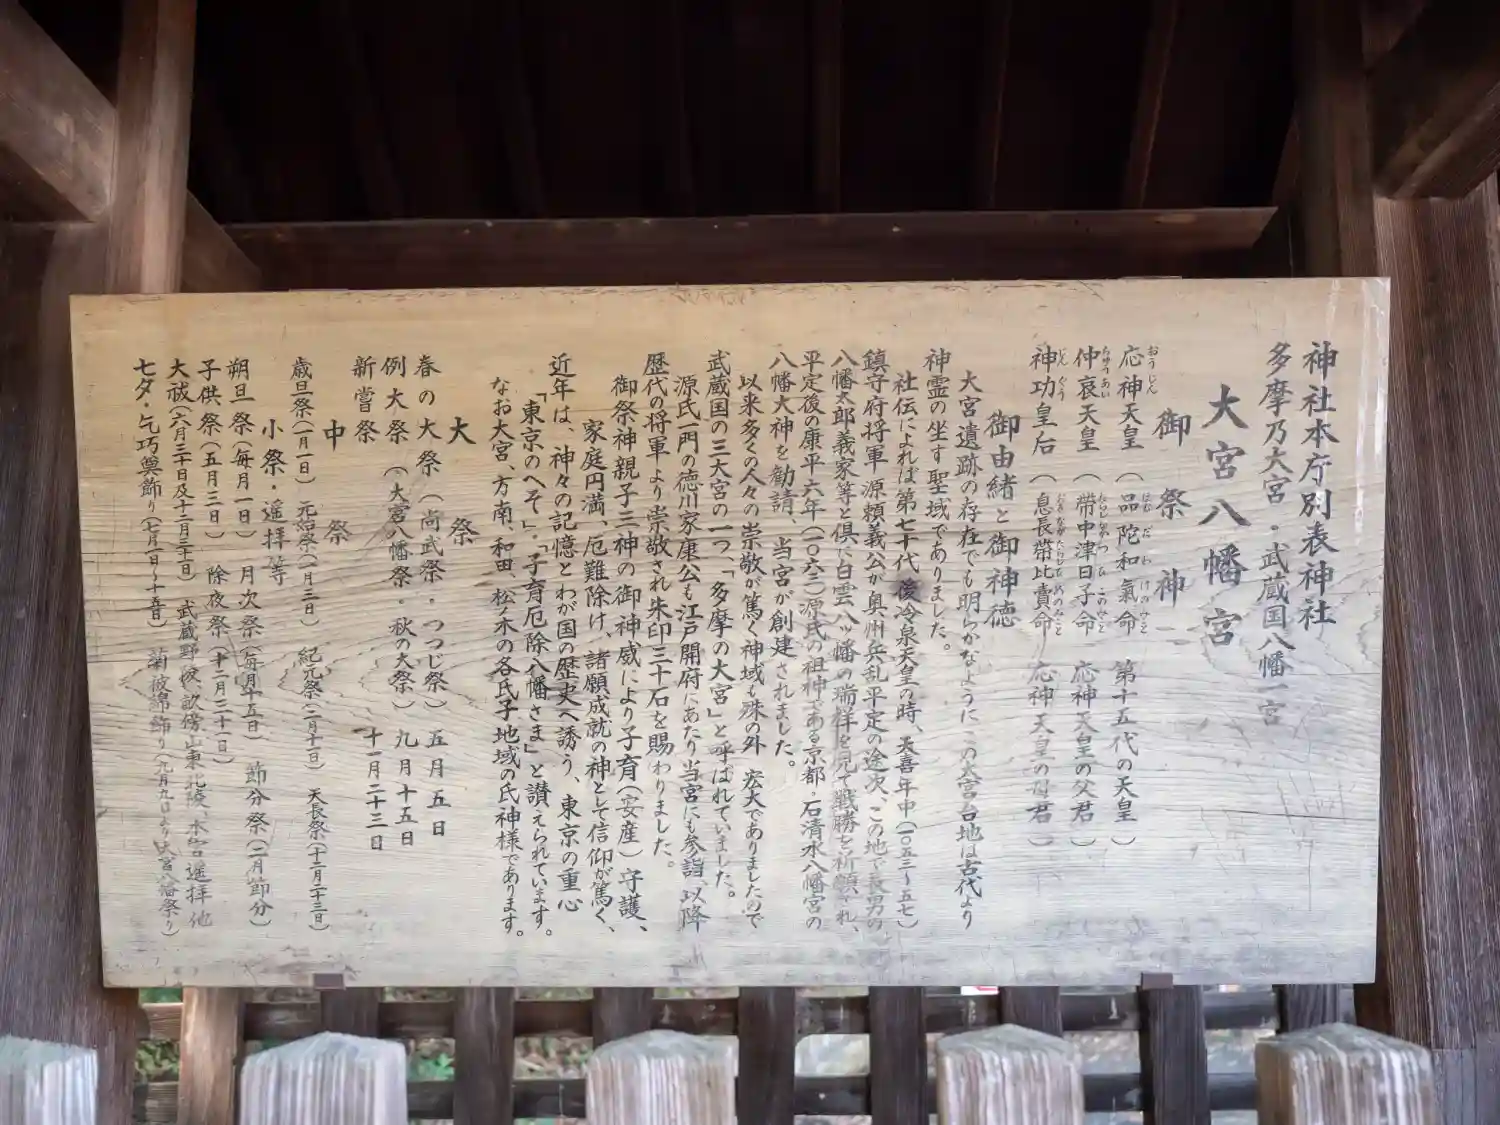 神社本庁別表神社
多摩乃大宮・武蔵国八幡一宮
大宮八幡宮
御祭神
応神天皇（品陀和氣命 第十五代の天皇）
仲哀天皇（帯中津日子命 応神天皇の父君）
神功皇后（息長帯比賣命 応神天皇の母君）
御由緒と御神徳
大宮遺跡の存在でも明らかなように、この大宮台地は古代より
神霊の坐す聖域でありました。
社伝によれば第七十代後冷泉天皇の時、天喜年中（一〇五三〜五七）
鎮守府将軍源頼義公が奥州兵乱平定の途次、この地で長男の
八幡太郎義家等と倶に白雲八ッ幡の瑞祥を見て戦勝を祈願され、
平定後の康平六年（一〇六三）源氏の祖神である京都・石清水八幡宮の
八幡大神を勧請、当宮が創建されました。
以来多くの人々の崇敬が篤く神域も殊の外 宏大でありましたので
武蔵国の三大宮の一つ、「多摩の大宮」と呼ばれていました。
源氏一門の徳川家康公も江戸開府にあたり当宮にも参詣、以降
歴代の将軍より崇敬され朱印三十石を賜わりました。
御祭神親子三神の御神威により子育（安産）守護、
家庭円満、厄難除け、諸願成就の神として信仰が篤く、
近年は、神々の記憶とわが国の歴史へ誘う、東京の重心
「東京のへそ」・「子育厄除八幡さま」と讃えられています。
なお大宮、方南、和田、松ノ木の各氏子地域の氏神様であります。
大祭
春の大祭（尚武祭・つつじ祭）五月五日
例大祭（大宮八幡祭・秋の大祭）九月十五日
新嘗祭 十一月二十三日
中祭
歳旦祭（一月一日） 元始祭（一月三日） 紀元祭（二月十一日） 天長祭（十二月二十三日）
小祭・遥拝等
朔旦祭（毎月一日） 月次祭（毎月十五日） 節分祭（二月節分）
子供祭（五月三日） 除夜祭（十二月三十一日）
大祓（六月三十日及十二月三十一日） 武蔵野
七夕・乞巧奠飾り